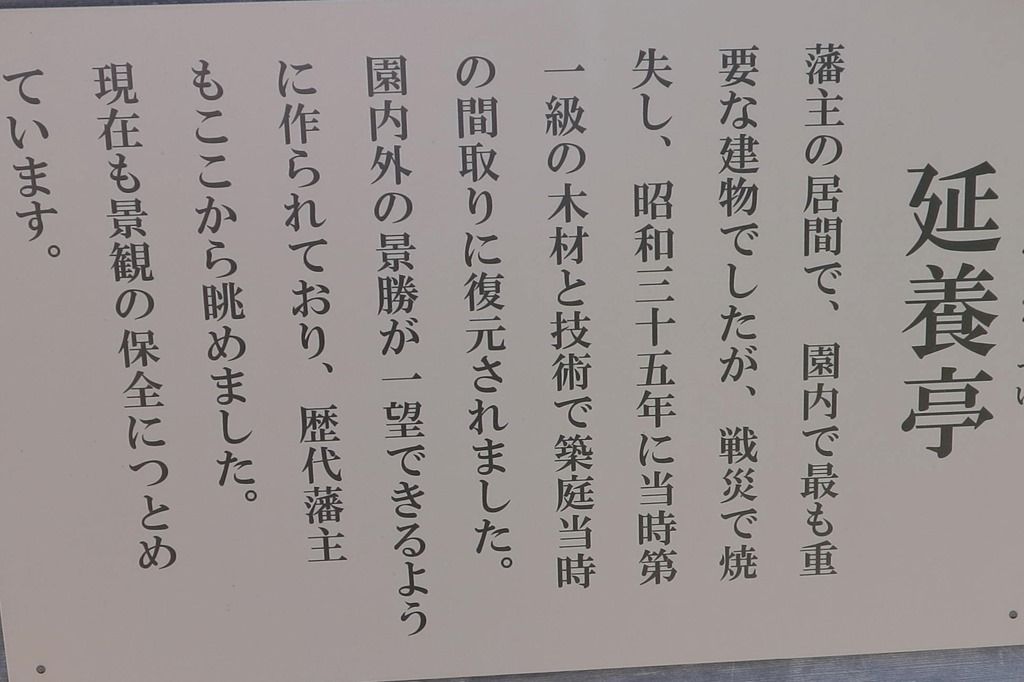 延養亭
藩主の居間で、園内で最も重
要な建物でしたが、戦災で焼
失し、昭和三十五年に当時第
一級の木材と技術で築庭当時
の間取りに復元されました。
園内外の景勝が一望できるよう
に作られており、歴代藩主
もここから眺めました。
現在も景観の保全につとめ
ています。